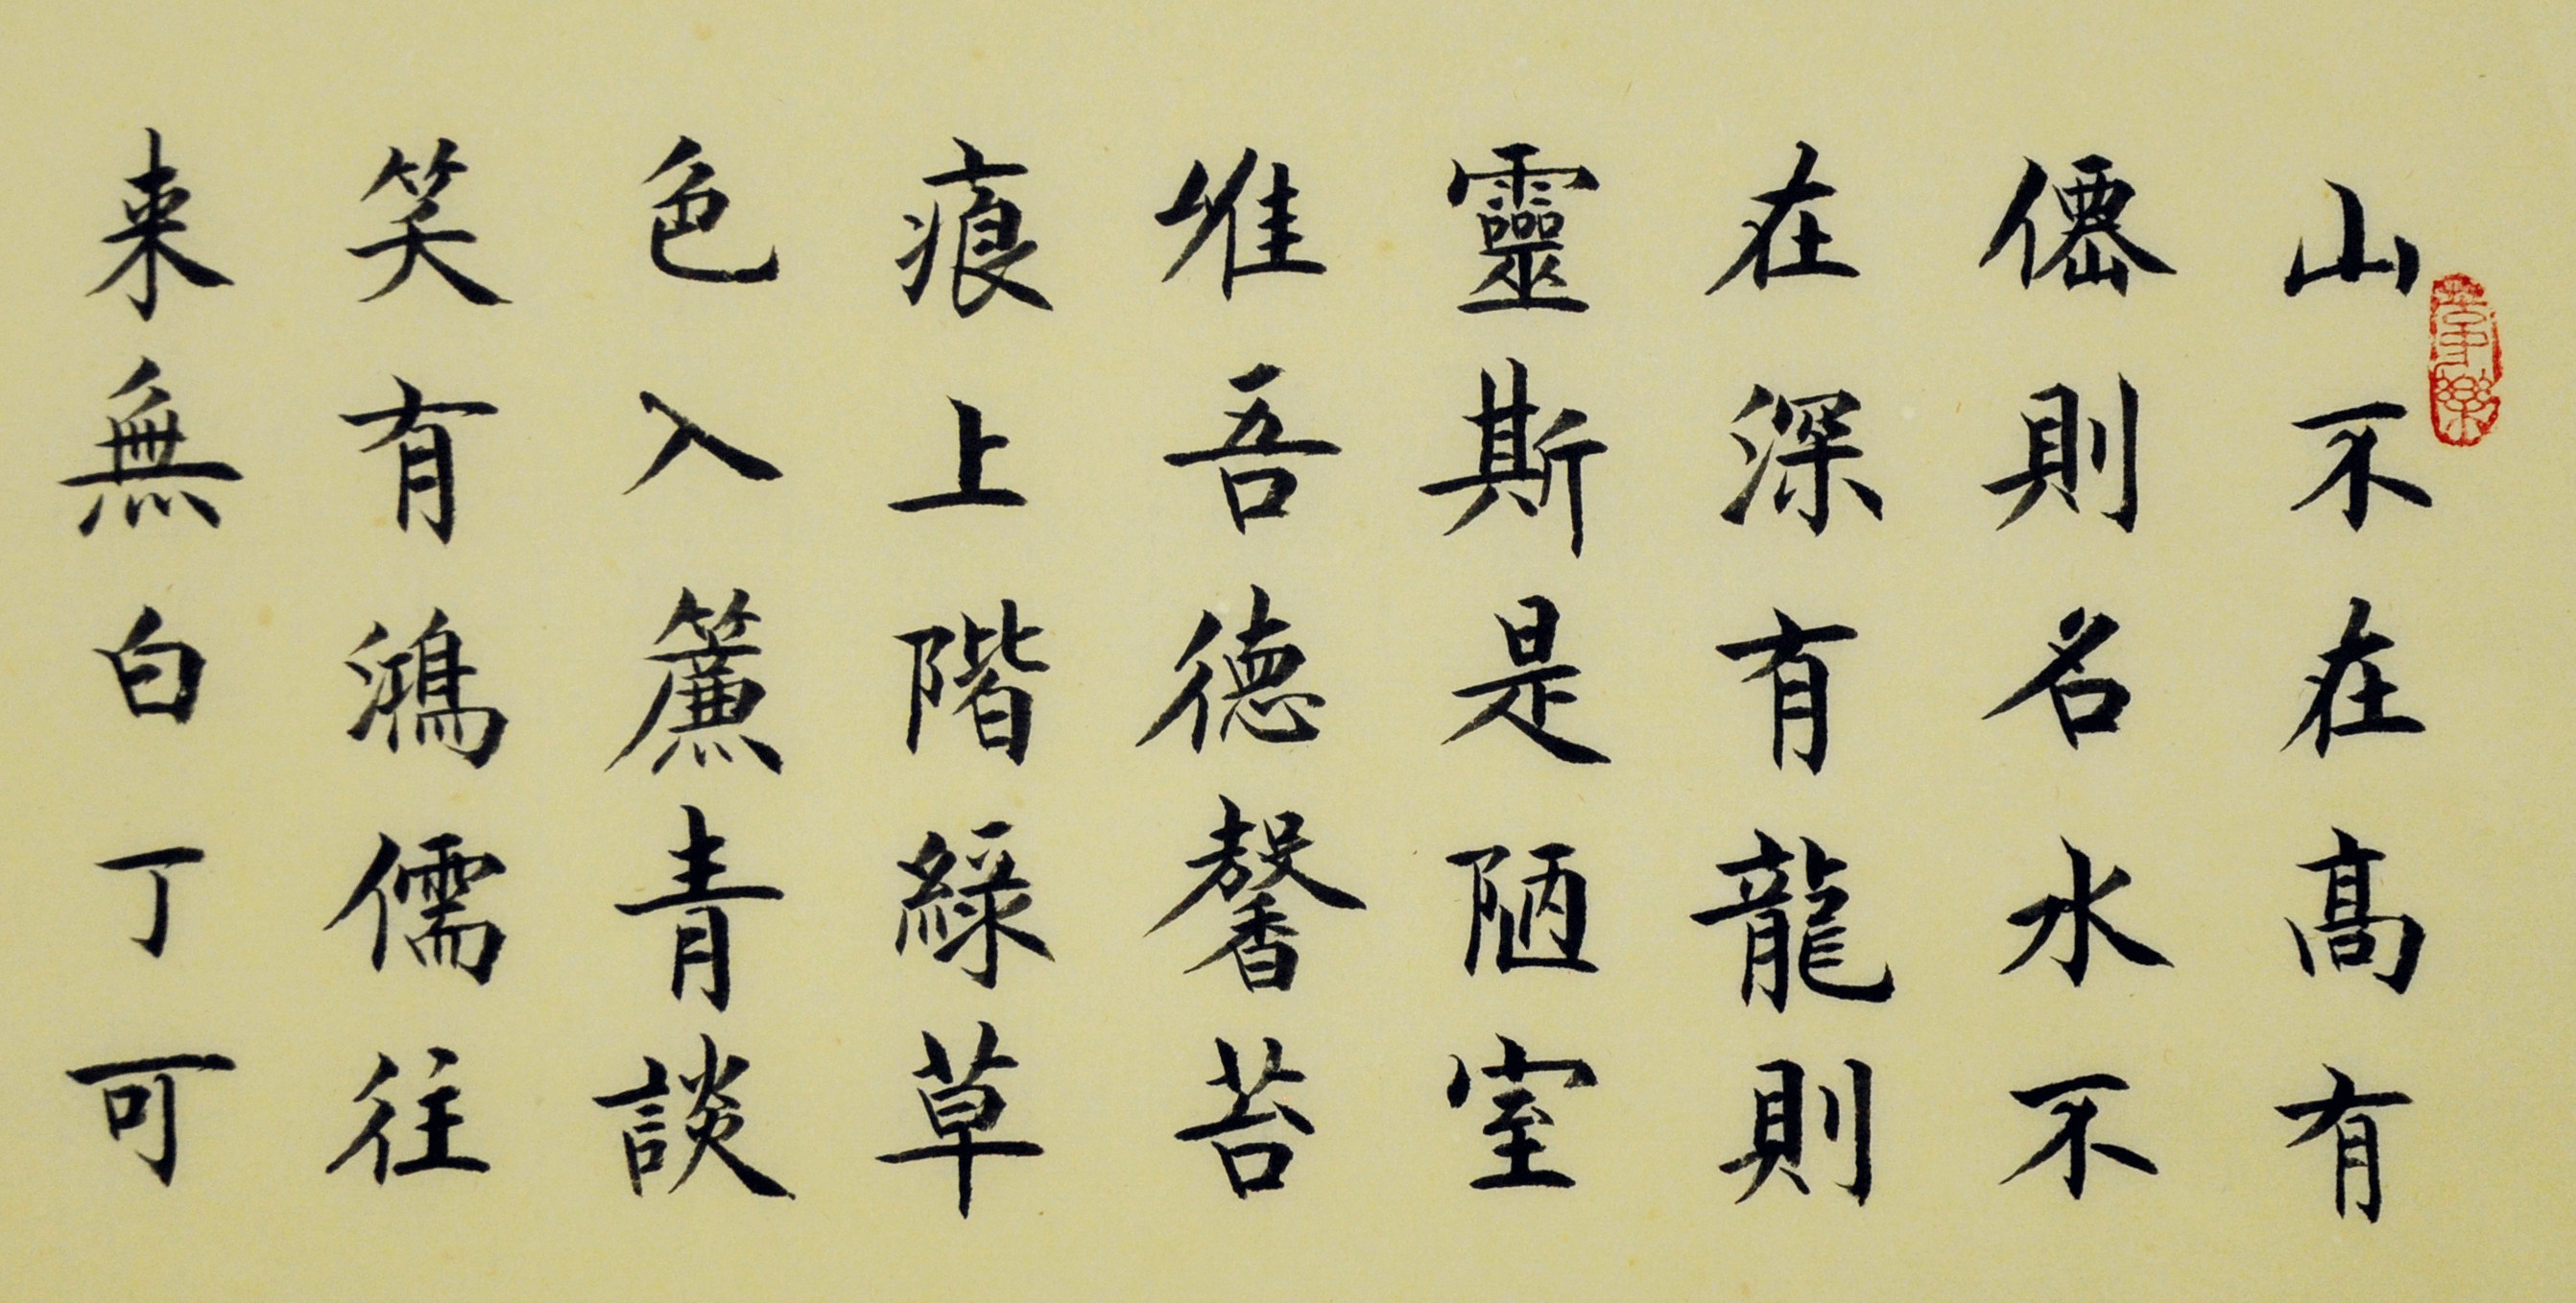 山不在髙有
僊則名水不
在深有龍則
靈斯是陋室
惟吾徳馨苔
痕上階綠草
色入簾青談
笑有鴻儒往
来無白丁可